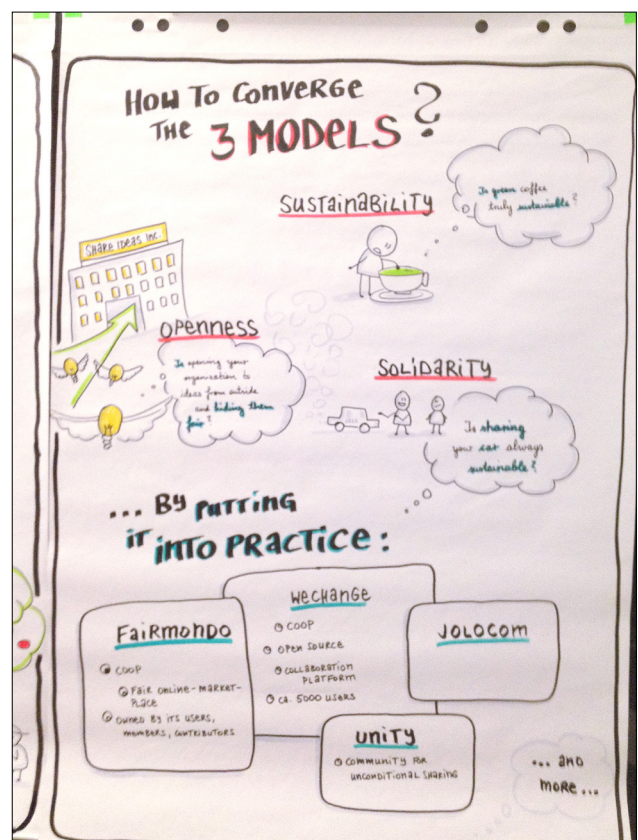 HOW TO CONVERGE
THE 3 MODELS?
SUSTAINABILITY
Is green coffee
truly sustainable?
SHARE IDEAS INC.
OPENNESS
Is opening your
organization to
ideas from outside
and hiding them
fair?
SOLIDARITY
Is sharing
your car always
sustainable?
... BY PUTTING
IT INTO PRACTICE:
FAIRMONDO
COOP
FAIR ONLINE-MARKET-
PLACE
OWNED BY ITS USERS,
MEMBERS, CONTRIBUTORS
WECHANGE
COOP
OPEN SOURCE
COLLABORATION
PLATFORM
CA. 5000 USERS
JOLOCOM
UNITY
COMMUNITY FOR
UNCONDITIONAL SHARING
... AND
MORE ...